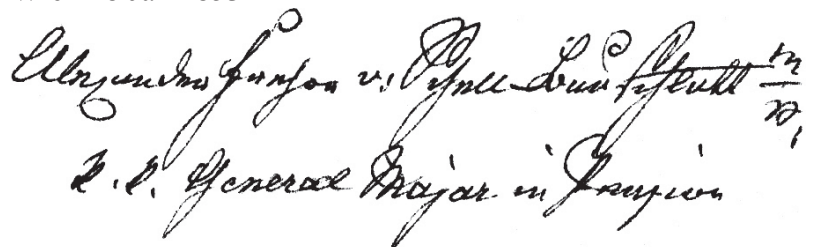 Alexander Freiherr v. Schell-Bauschlott m/p,
k. k. General Major in Pension